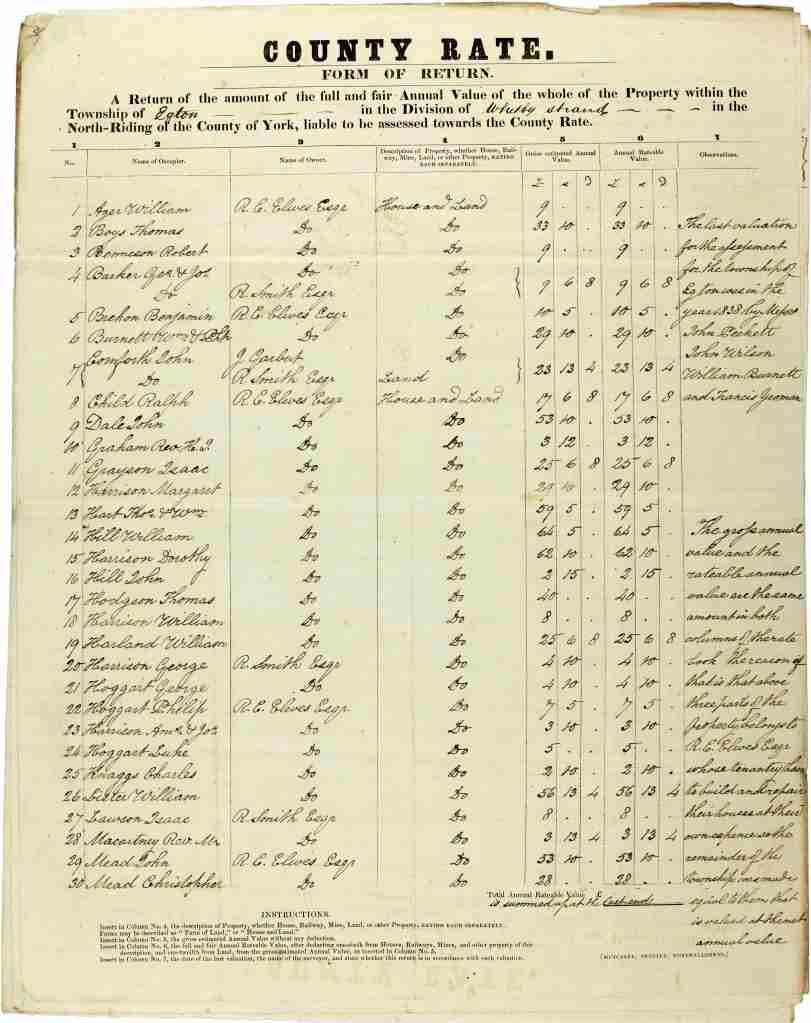 COUNTY RATE.
FORM OF RETURN.
A Return of the amount of the full and fair Annual Value of the whole of the Property within the
Township of Egton in the Division of Whitby Strand in the
North-Riding of the County of York, liable to be assessed towards the County Rate.
1 2 3 4 5 6 7
No. Name of Occupier. Name of Owner. Description of Property, whether House, Railway, Mine, Land, or other Property, RATING EACH SEPARATELY. Gross estimated Annual Value. Annual Rateable Value. Observations.
£ s D £ s D
1 Ager William R. C. Elwes Esqr House and Land 9 . . 9 . .
2 Boys Thomas Do Do 33 10 . 33 10 . The last valuation
3 Bonneson Robert Do Do 9 . . 9 . . for the assessment
4 Barker Geo. & Jos. Do Do for the township of
Do R. Smith Esqr Do 9 6 8 9 6 8 Egton was in the
5 Benjamin R. C. Elwes Esqr Do 10 5 . 10 5 . year 1838 by Messrs
6 Burnett Wm & Do Do 29 10 . 29 10 . John
7 Comforth John J. Garbut Do John Wilson
Do R. Smith Esqr Land 23 13 4 23 13 4 William Burnett
8 Child Ralph R. C. Elwes Esqr House and Land 17 6 8 17 6 8 and Francis Yeoman
9 Dale John Do Do 53 10 . 53 10 .
10 Graham Rev. H. J. Do Do 3 12 . 3 12 .
11 Grayson Isaac Do Do 25 6 8 25 6 8
12 Harrison Margaret Do Do 29 10 . 29 10 .
13 Hart Thos. & Wm Do Do 59 5 . 59 5 .
14 Hill William Do Do 64 5 . 64 5 . The gross annual
15 Harrison Dorothy Do Do 62 10 . 62 10 . value and the
16 Hill John Do Do 2 15 . 2 15 . rateable annual
17 Hodgson Thomas Do Do 40 . . 40 . . value are the same
18 Harrison William Do Do 8 . . 8 . . amount in both
19 Harland William Do Do 25 6 8 25 6 8 columns of the rate
20 Harrison George R. Smith Esqr Do 4 10 . 4 10 . book The reason of
21 Hoggart George Do Do 4 10 . 4 10 . that is that above
22 Hoggart Philip R. C. Elwes Esqr Do 7 5 . 7 5 . three parts of the
23 Harrison & Jos. Do Do 3 10 . 3 10 . property belongs to
24 Hoggart Luke Do Do 5 . . 5 . . R. C. Elwes Esqr
25 Knaggs Charles Do Do 2 10 . 2 10 . whose tenantry have
26 Lister William Do Do 56 13 4 56 13 4 to build and repair
27 Lawson Isaac R. Smith Esqr Do 8 . . 8 . . their houses at their
28 Macartney Rev. Mr Do Do 3 13 4 3 13 4 own expence so the
29 Mead John R. C. Elwes Esqr Do 53 10 . 53 10 . remainder of the
30 Mead Christopher Do Do 28 . . 28 . . township was made
Total Annual Rateable Value £ equal to them that
is summed up at the end is valued at the net
annual value
INSTRUCTIONS.
Insert in Column No. 4, the description of Property, whether House, Railway, Mine, Land, or other Property, RATING EACH SEPARATELY.
Farms may be described as "Farm of Land," or "House and Land."
Insert in Column No. 5, the gross estimated Annual Value without any deduction.
Insert in Column No. 6, the full and fair Annual Rateable Value, after deducting one-sixth from Houses, Railways, Mines, and other property of this
description, and one-twelfth from Land, from the gross estimated Annual Value, as inserted in Column No. 5.
Insert in Column No. 7, the date of the last valuation, the name of the surveyor, and state whether this return is in accordance with such valuation.
[METCALFE, PRINTER, NORTHALLERTON.]